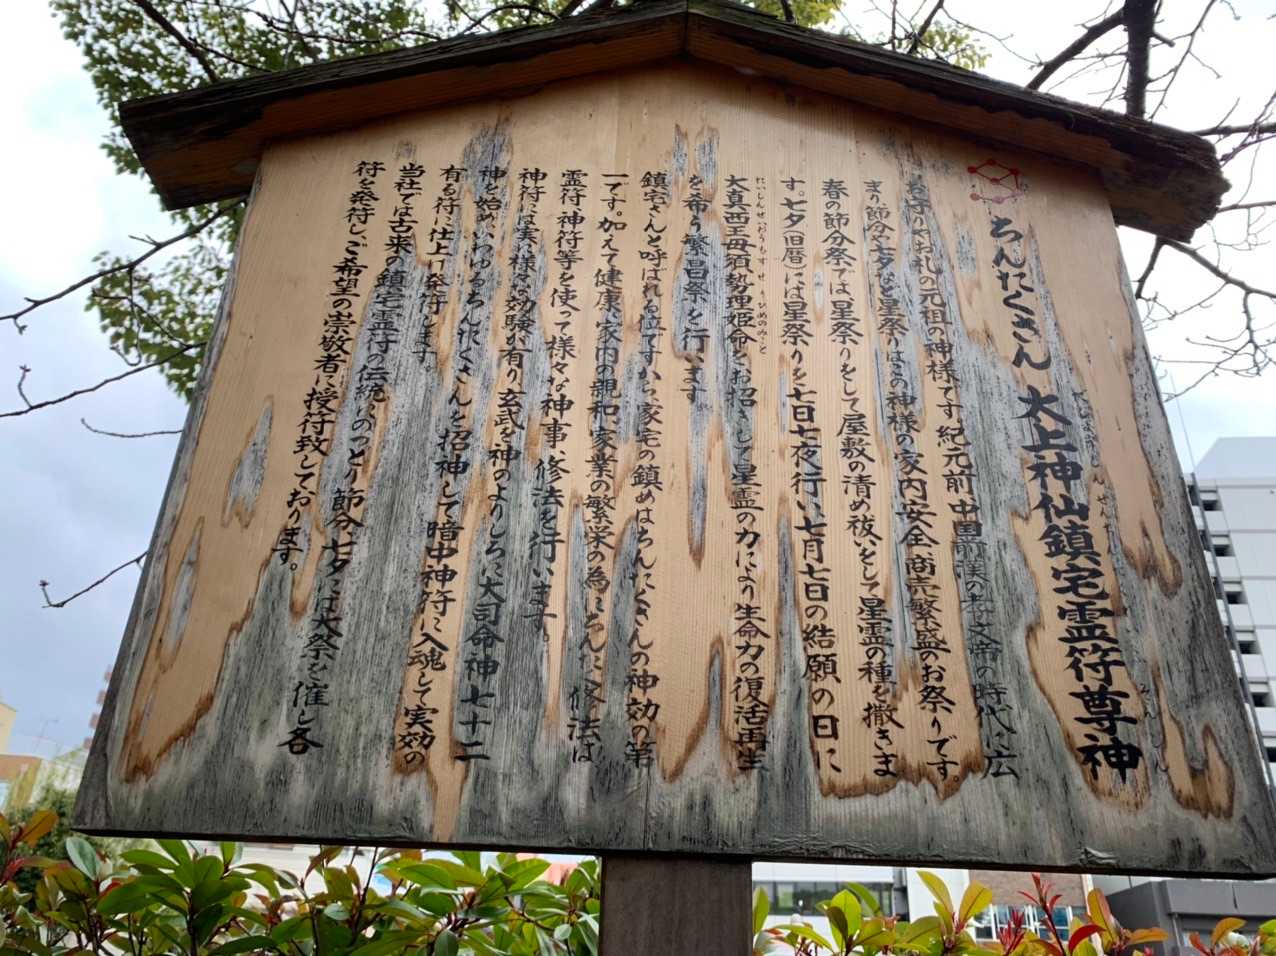 ちんたくさん 太上神仙鎮宅霊符尊神
お守りお札の元祖の神様です。紀元前中国前漢の孝文帝の時代、広
まり節分や など星祭りはこの神様の家内安全商売繁盛のお祭りです。
春の節分祭では星祭りをして屋敷の清め祓をし星霊の種を撒きま
す。七夕(旧暦)には星祭りを七日七夜行い、七月七日の結願の日に
大真西王母須勢理姫命をお招して星霊の力により生命力の復活再生
を希う繁昌祭を行います
鎮宅さんと呼ばれる位ですから家宅の鎮めはちんたくさんの神力の第
一です。加えて健康、家内の親和、家業の繁栄の為とちんたく修法は
霊符神符等を使って様々な神事、修法を行います
神符には実に様々な効験が有り玄武を神のよりしろに大司命神七十二
神を始めいわゆるちんたくさんを招神して暗中神符に入魂して実効の
有る符に仕上げ発行します。
当社では古来の鎮宅霊行の伝統にのっとり節分、七夕には大祭を催し各
符を発符しご希望の崇敬者に授符致しております。